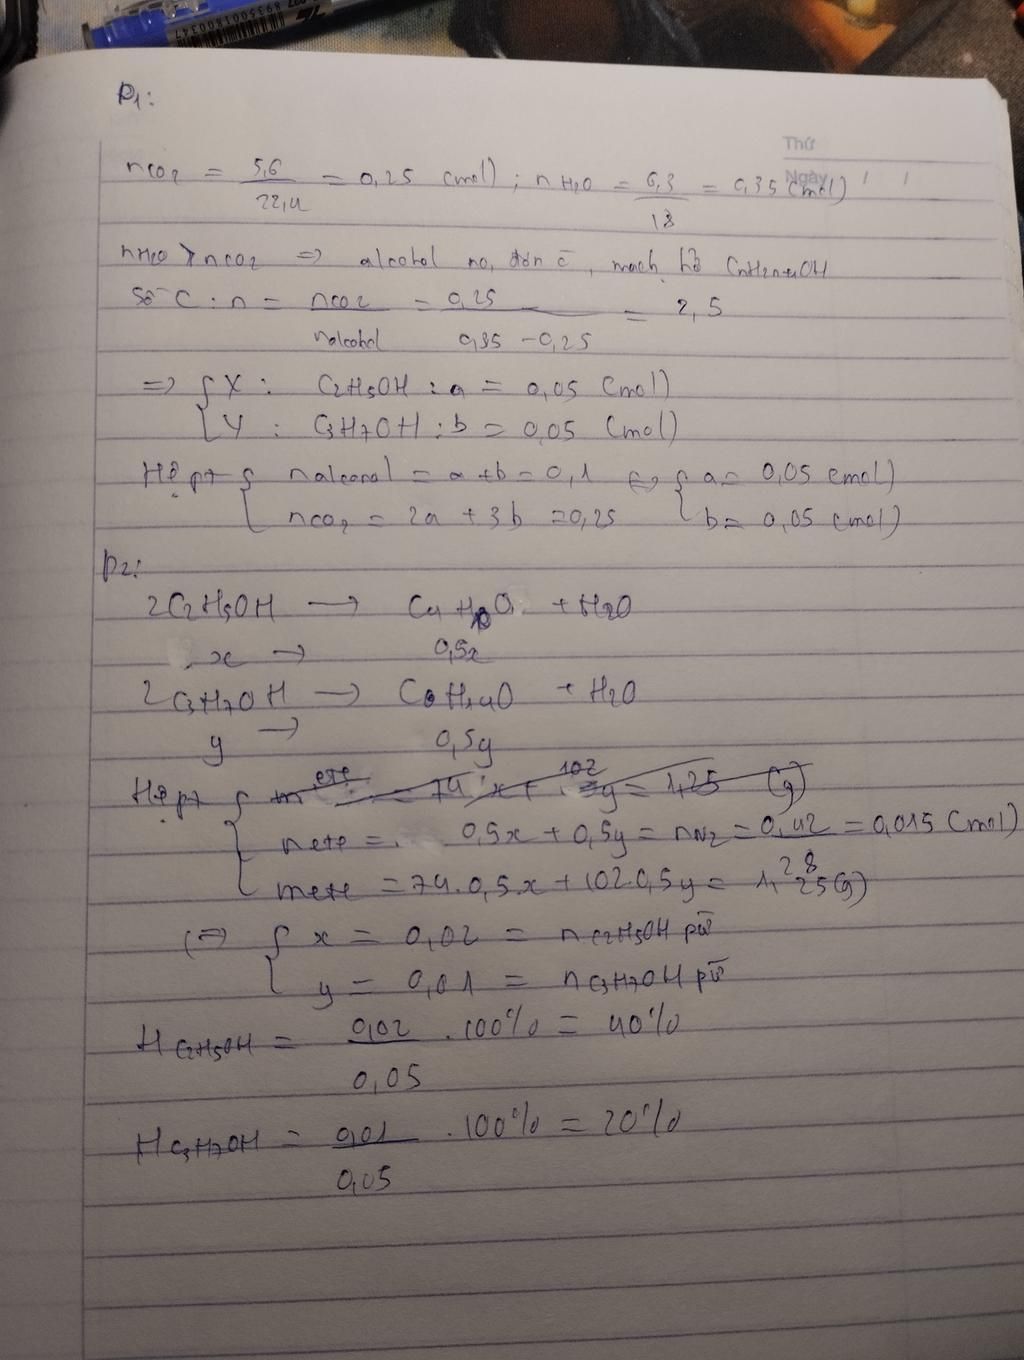 8935001800347
P1:
Thứ
Ngày / /
nCO2 = 5,6/22,4 = 0,25 (mol); nH2O = 6,3/18 = 0,35 (mol)
nH2O > nCO2 => alcohol no, đơn c, mạch hở CnH2n+1OH
Số C: n = nCO2/nalcohol = 0,25/0,35 - 0,25 = 2,5
=> { X: C2H5OH: a = 0,05 (mol)
Y: C3H7OH: b = 0,05 (mol)
Hệ pt { nalcohol = a + b = 0,1 <=> { a = 0,05 (mol)
nCO2 = 2a + 3b = 0,25 { b = 0,05 (mol)
P2:
2C2H5OH → C4H10O + H2O
x → 0,5x
2C3H7OH → C6H14O + H2O
y → 0,5y
Hệ pt { mete = 74x + 102y = 1,25 (g)
nete = 0,5x + 0,5y = nN2 = 0,42/28 = 0,015 (mol)
mete = 74.0,5x + 102.0,5y = 1,25 (g)
(=) { x = 0,02 = nC2H5OH pứ
y = 0,01 = nC3H7OH pứ
HC2H5OH = 0,02/0,05 . 100% = 40%
HC3H7OH = 0,01/0,05 . 100% = 20%